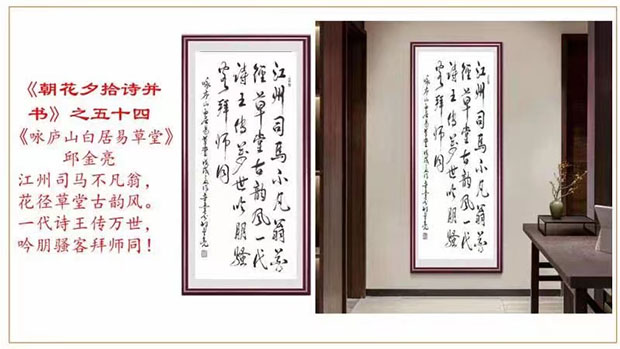 《朝花夕拾诗并
书》之五十四
《咏庐山白居易草堂》
邱金亮
江州司马不凡翁，
花径草堂古韵风。
一代诗王传万世，
吟朋骚客拜师同！
江州司马不凡翁花
径草堂古韵风一代
诗王传万世吟朋骚
客拜师同
咏庐山白居易草堂
江州司马不凡翁花
径草堂古韵风一代
诗王传万世吟朋骚
客拜师同
咏庐山白居易草堂